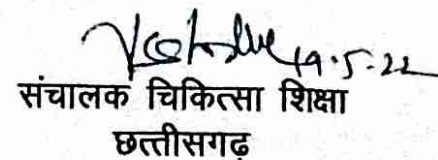 19.5.22
संचालक चिकित्सा शिक्षा
छत्तीसगढ़